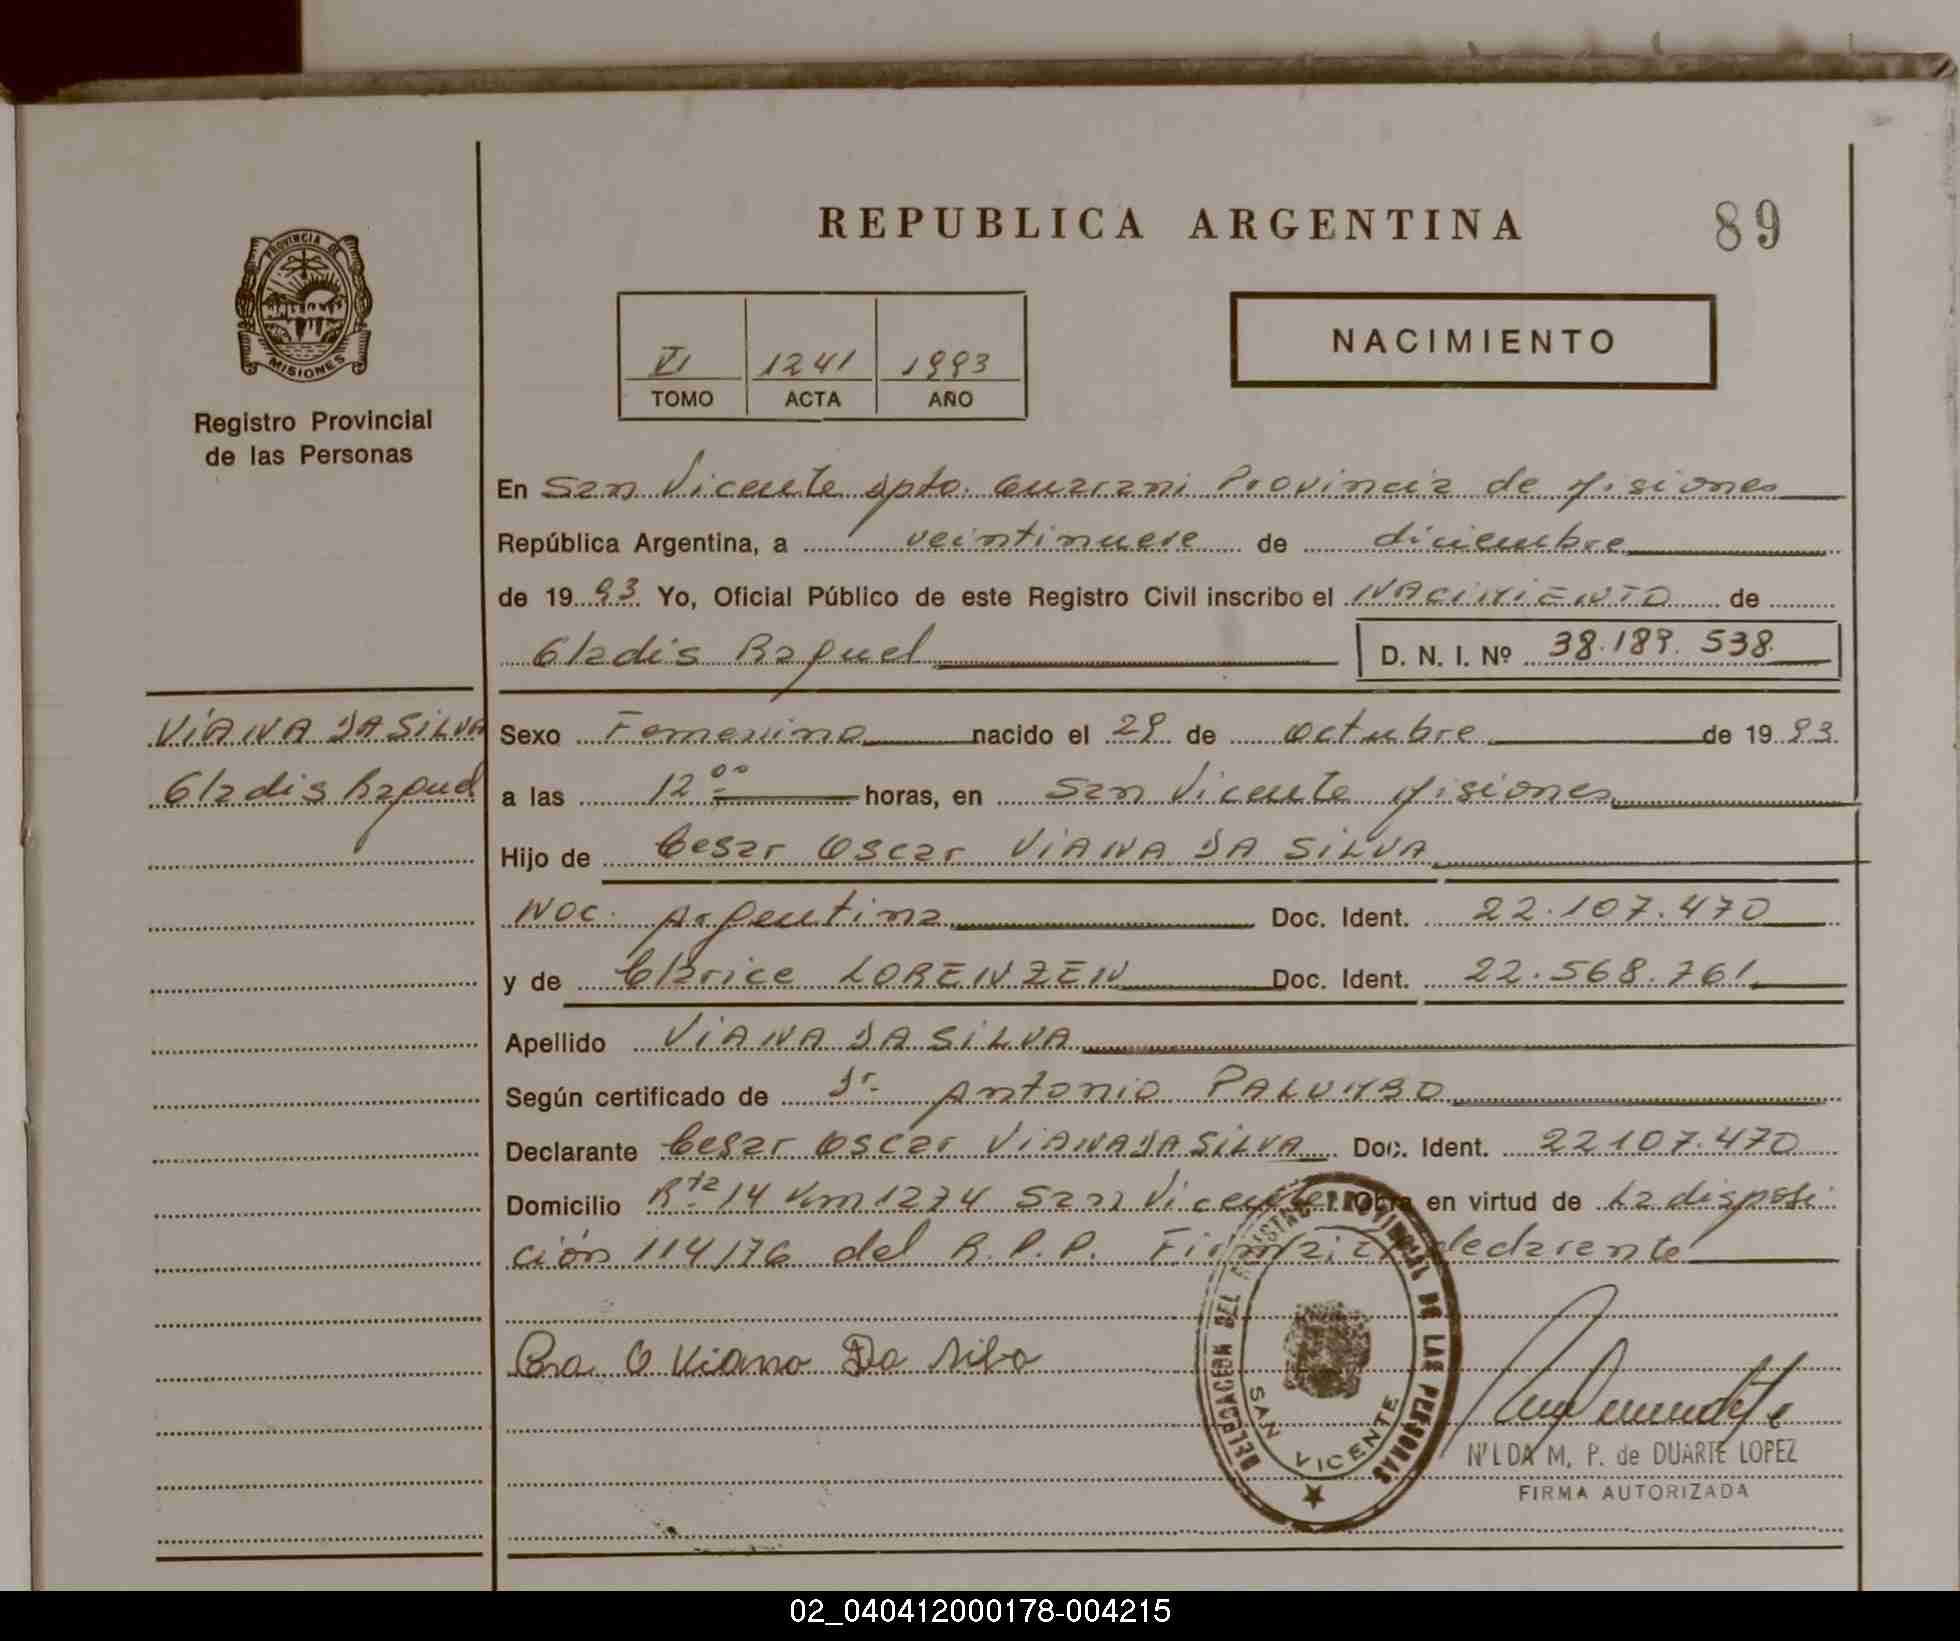 REPUBLICA ARGENTINA
89
PROVINCIA DE
MISIONES
Registro Provincial
de las Personas
VI 1241 1993
TOMO ACTA AÑO
NACIMIENTO
En San Vicente Dpto. Guarani Provincia de Misiones
República Argentina, a veintinueve de diciembre
de 1993 Yo, Oficial Público de este Registro Civil inscribo el NACIMIENTO de
Gladis Raquel D. N. I. Nº 38.189.538
VIANA DA SILVA
Gladis Raquel
Sexo Femenino nacido el 29 de octubre de 1993
a las 12 00 horas, en San Vicente Misiones
Hijo de Cesar Oscar VIANA DA SILVA
Nac. Argentina Doc. Ident. 22.107.470
y de Clarice LORENZEN Doc. Ident. 22.568.761
Apellido VIANA DA SILVA
Según certificado de Dr. Antonio PALUMBO
Declarante Cesar Oscar VIANA DA SILVA Doc. Ident. 22107.470
Domicilio Rta 14 Km 1274 San Vicente Obra en virtud de La disposi
ción 114/76 del R.P.P. Firma declarante
O Viana Da Silva
DELEGACION DEL REGISTRO PROVINCIAL DE LAS PERSONAS
SAN VICENTE
NILDA M. P. de DUARTE LOPEZ
FIRMA AUTORIZADA
02_040412000178-004215